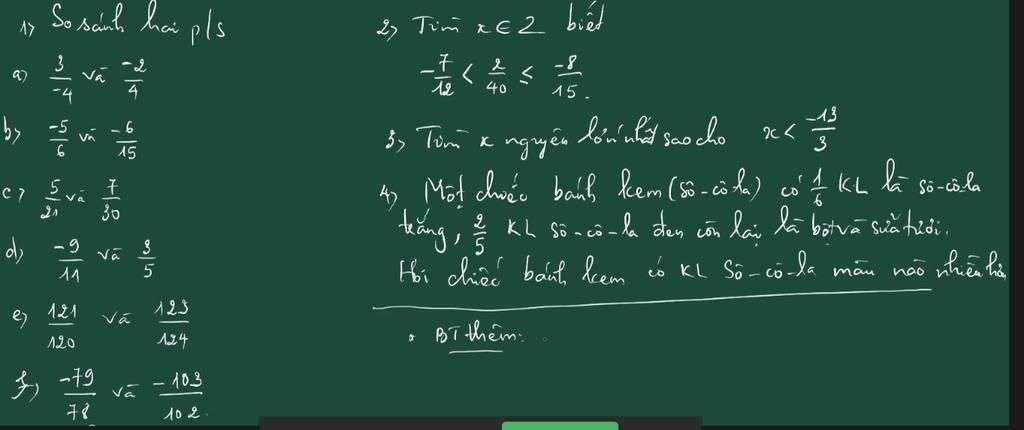 1) So sánh hai p/s
a) 3/-4 và -2/4
b) -5/6 và -6/15
c) 5/21 và 7/30
d) -9/11 và 3/5
e) 121/120 và 123/124
f) -79/78 và -103/102.
2) Tìm x ∈ Z biết
-7/12 < 2/40 ≤ -8/15.
3) Tìm x nguyên lớn nhất sao cho x < -13/3
4) Một chiếc bánh kem (sô-cô-la) có 1/6 KL là sô-cô-la
trắng, 2/5 KL sô-cô-la đen còn lại là bột và sữa tươi.
Hỏi chiếc bánh kem có KL Sô-cô-la màu nào nhiều hơn
* BT thêm: